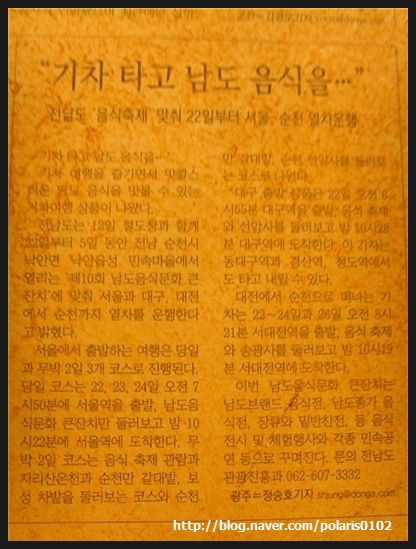 “기차 타고 남도 음식을…”
전남도 ‘음식축제’ 맞춰 22일부터 서울~순천 열차운행
기차 타고 남도 음식을…
기차 여행을 즐기면서 맛깔스
러운 남도 음식을 맛볼 수 있는
기차여행 상품이 나왔다.
전남도는 12일 철도청과 함께
22일부터 5일 동안 전남 순천시
낙안면 낙안읍성 민속마을에서
열리는 ‘제10회 남도음식문화 큰
잔치’에 맞춰 서울과 대구, 대전
에서 순천까지 열차를 운행한다
고 밝혔다.
서울에서 출발하는 여행은 당일
과 무박 2일 3개 코스로 진행된다.
당일 코스는 22, 23, 24일 오전 7
시50분에 서울역을 출발, 남도음
식문화 큰잔치만 둘러보고 밤 10
시22분에 서울역에 도착한다. 무
박 2일 코스는 음식 축제 관람과
지리산온천과 순천만 갈대밭, 보
성 차밭을 둘러보는 코스와 순천
만 갈대밭, 순천 선암사를 둘러보
는 코스로 나뉜다.
대구 출발 상품은 22일 오전 6
시55분 대구역을 출발, 음식 축제
와 선암사를 둘러보고 밤 10시28
분 대구역에 도착한다. 이 기차는
동대구역과 경산역, 청도역에서
도 타고 내릴 수 있다.
대전에서 순천으로 떠나는 기
차는 22~24일과 26일 오전 8시
21분 서대전역을 출발, 음식 축제
와 송광사를 둘러보고 밤 10시19
분 서대전역에 도착한다.
이번 남도음식문화 큰잔치는
남도브랜드 음식전, 남도종가 음
식전, 장류와 밑반찬전, 등 음식
전시 및 체험행사와 각종 민속공
연 등으로 꾸며진다. 문의 전남도
관광진흥과 062-607-3332
광주=정승호기자 shjung@donga.com
http://blog.naver.com/polaris0102